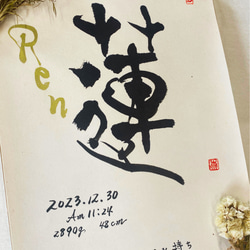 Ren
蓮
2023.12.30
Am 11:24
2890g. 48cm